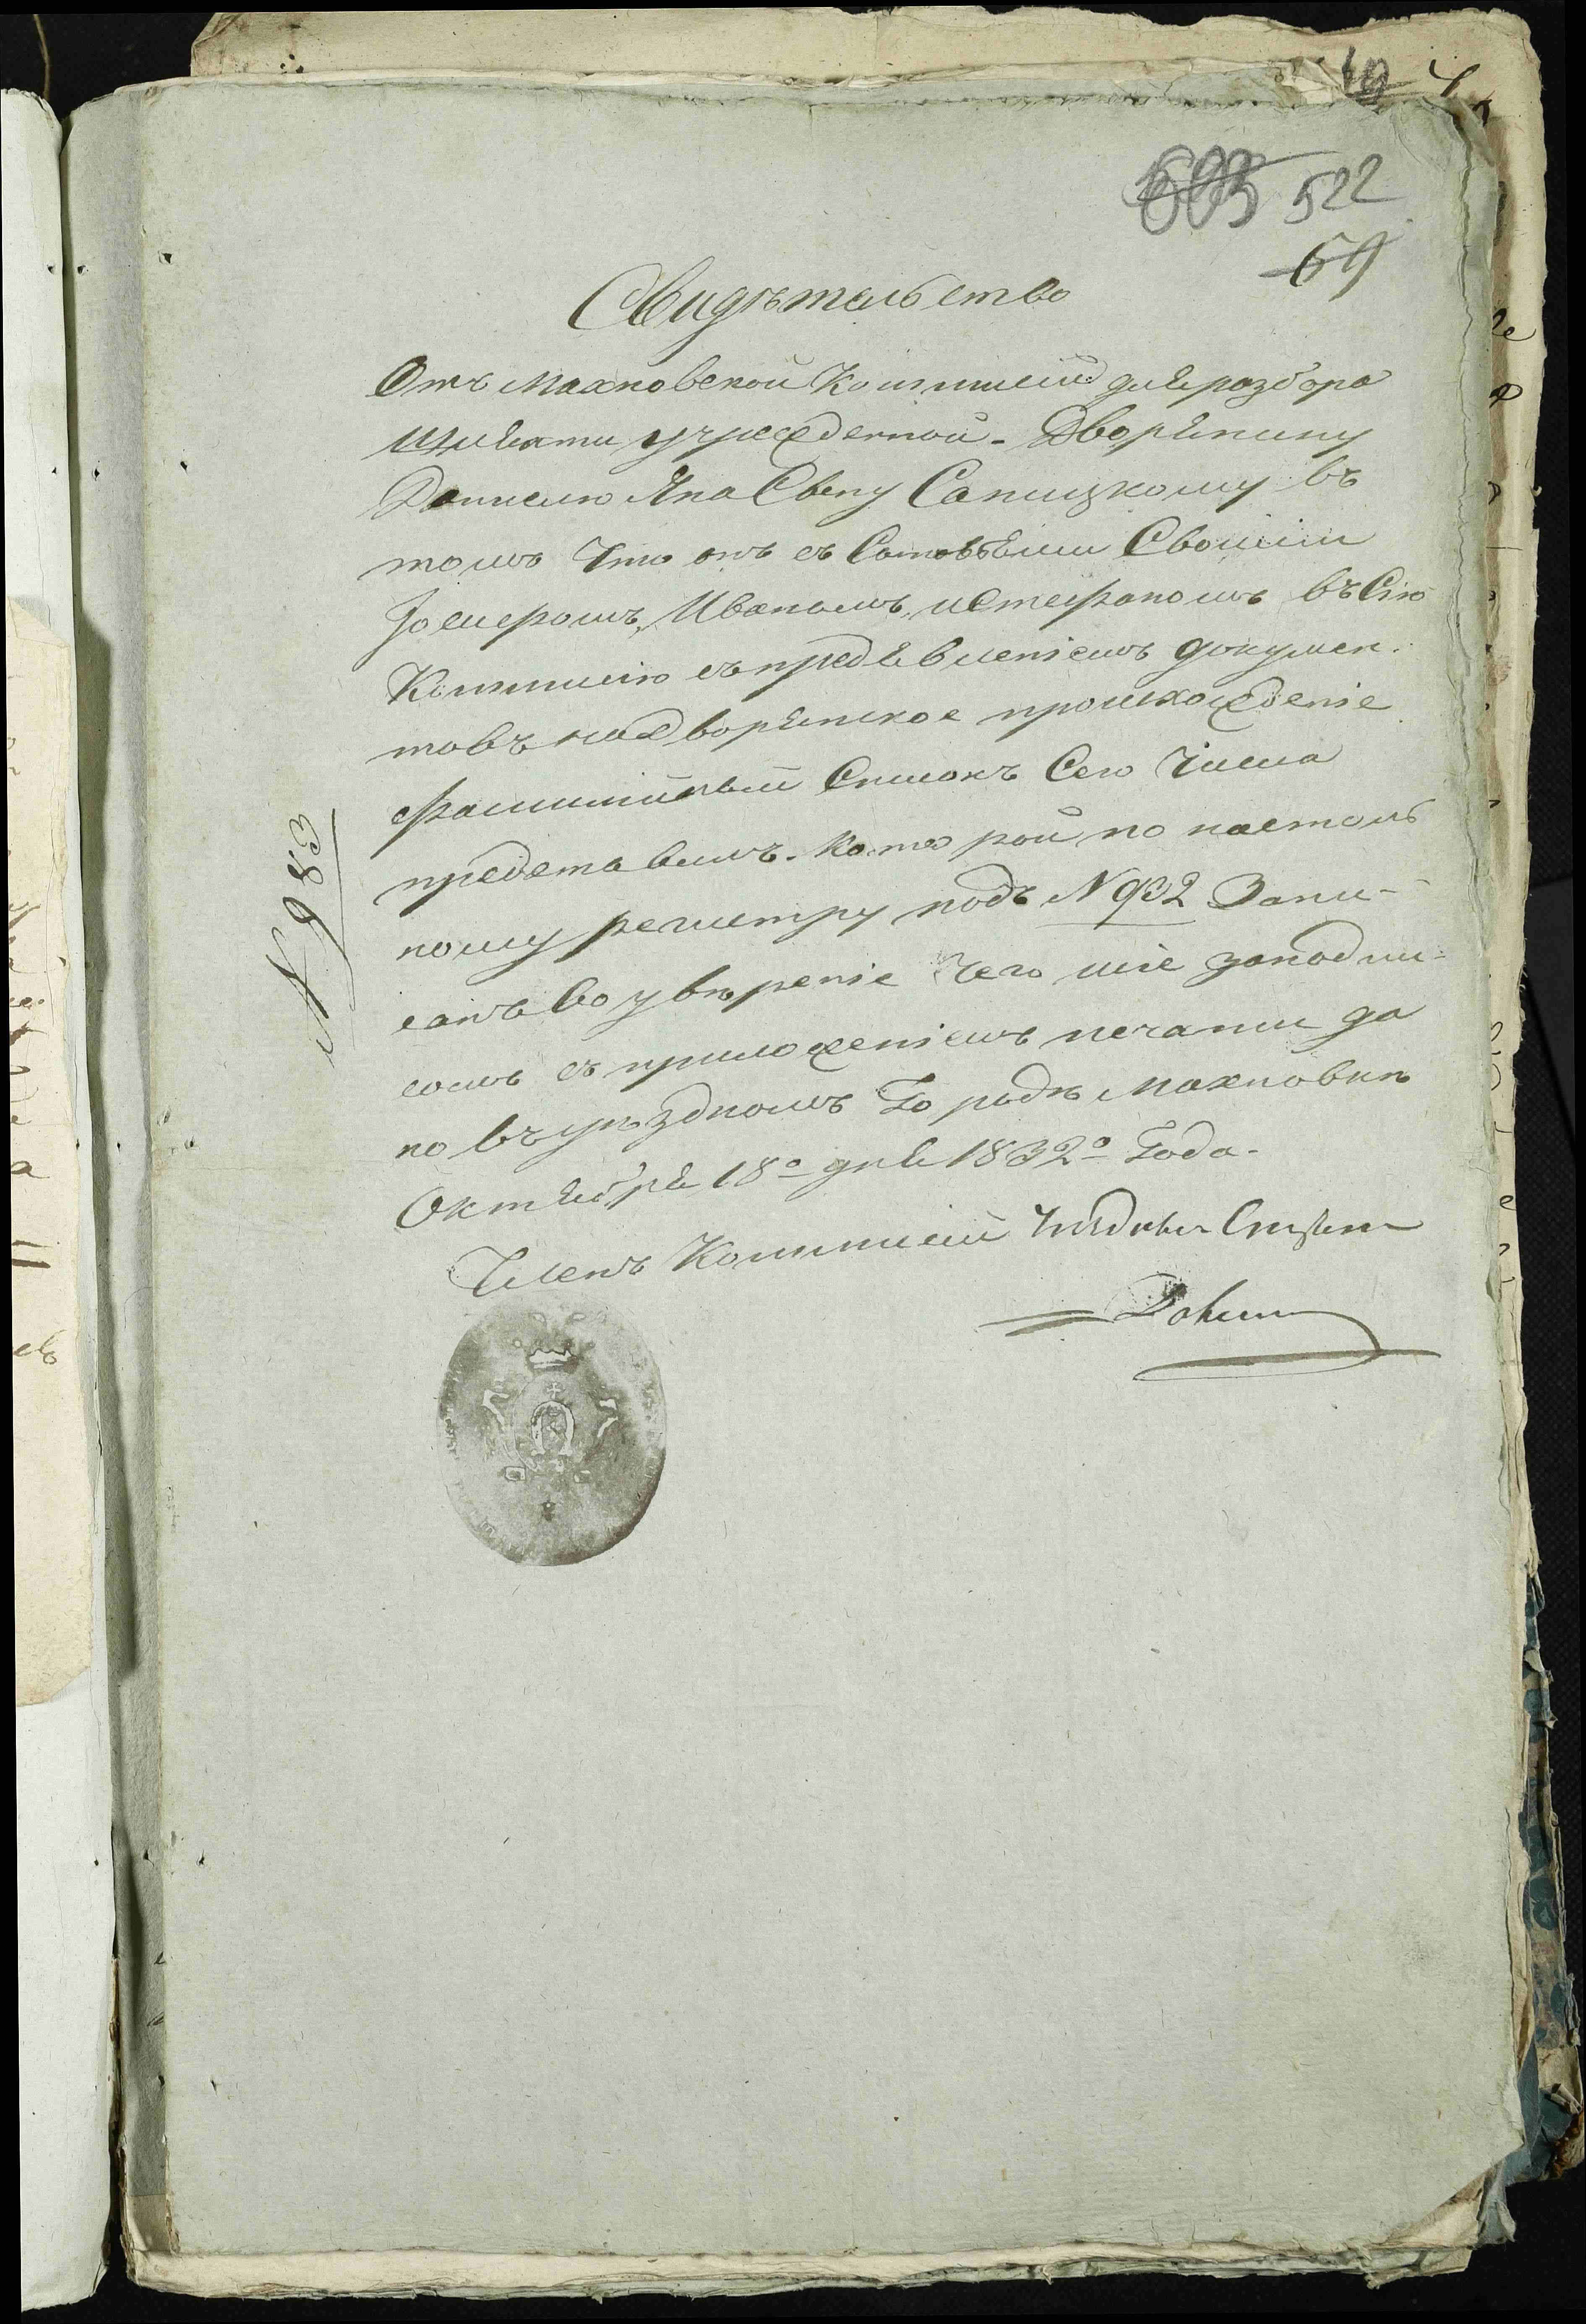 10
603 522
64
Свидѣтельство
Отъ Махновской Коммисіи для разбора
Шляхти учрежденной. Дворянину
Данилю Яна Свену Саницкому въ
томъ Что онъ съ Сыновьями Своими
Іосифомъ, Иваномъ, и Стефаномъ въ Сію
Коммисію съ предъявленіемъ докумен.
товъ на дворянское происхожденіе
фамилійный Списокъ Сего Числа
представилъ. которой по настоль
ному регистру подъ N 932 Запи-
санъ Во увѣреніе чего сіе за подпи-
сомъ съ приложеніемъ печати да
но въ уѣздномъ Городѣ Махновкѣ
Октября 18º дня 1832º Года.
Членъ Коммисіи
N 983